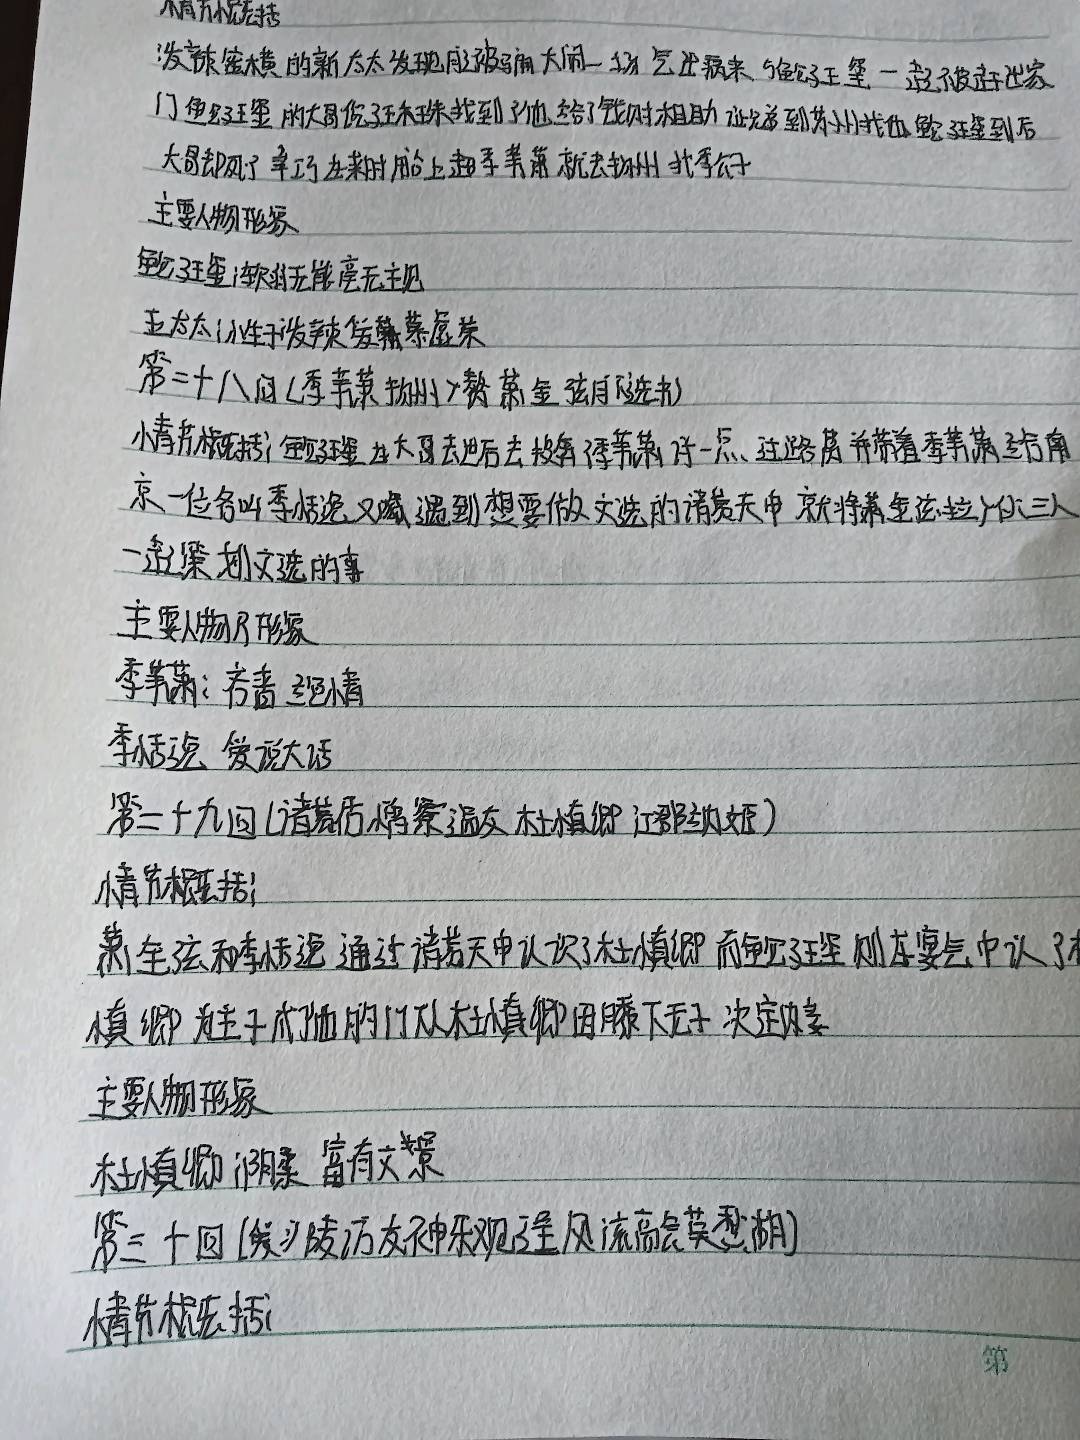 情节概括
泼辣蛮横的新太太发现后大闹一场气出病来与鲍廷玺一起被赶出家
门鲍廷玺的大哥倪廷珠找到了他给了钱财相助让兄弟到苏州找他鲍廷玺到后
大哥却死了幸巧在来时船上遇季苇萧就去扬州找季公子
主要人物形象
鲍廷玺:软弱无能毫无主见
王太太:小性子泼辣爱慕虚荣
第二十八回(季苇萧扬州入赘萧金弦白下选书)
情节概括:鲍廷玺在大哥去世后去投奔季苇萧得一点过路费并带着季苇萧给南
京一位名叫季恬逸又遇到想要做文选的诸葛天申就将萧金弦拉入伙三人
一起谋划文选的事
主要人物形象
季苇萧:吝啬绝情
季恬逸爱说大话
第二十九回(诸葛佑僧寮遇友杜慎卿江郡纳姬)
情节概括:
萧金弦和季恬逸通过诸葛天申认识了杜慎卿而鲍廷玺则在宴气中认了杜
慎卿为主子成了他的门人杜慎卿因膝下无子决定纳妾
主要人物形象
杜慎卿阴柔富有文采
第三十回(爱少陵访友神乐观逞风流高会莫愁湖)
情节概括:
第